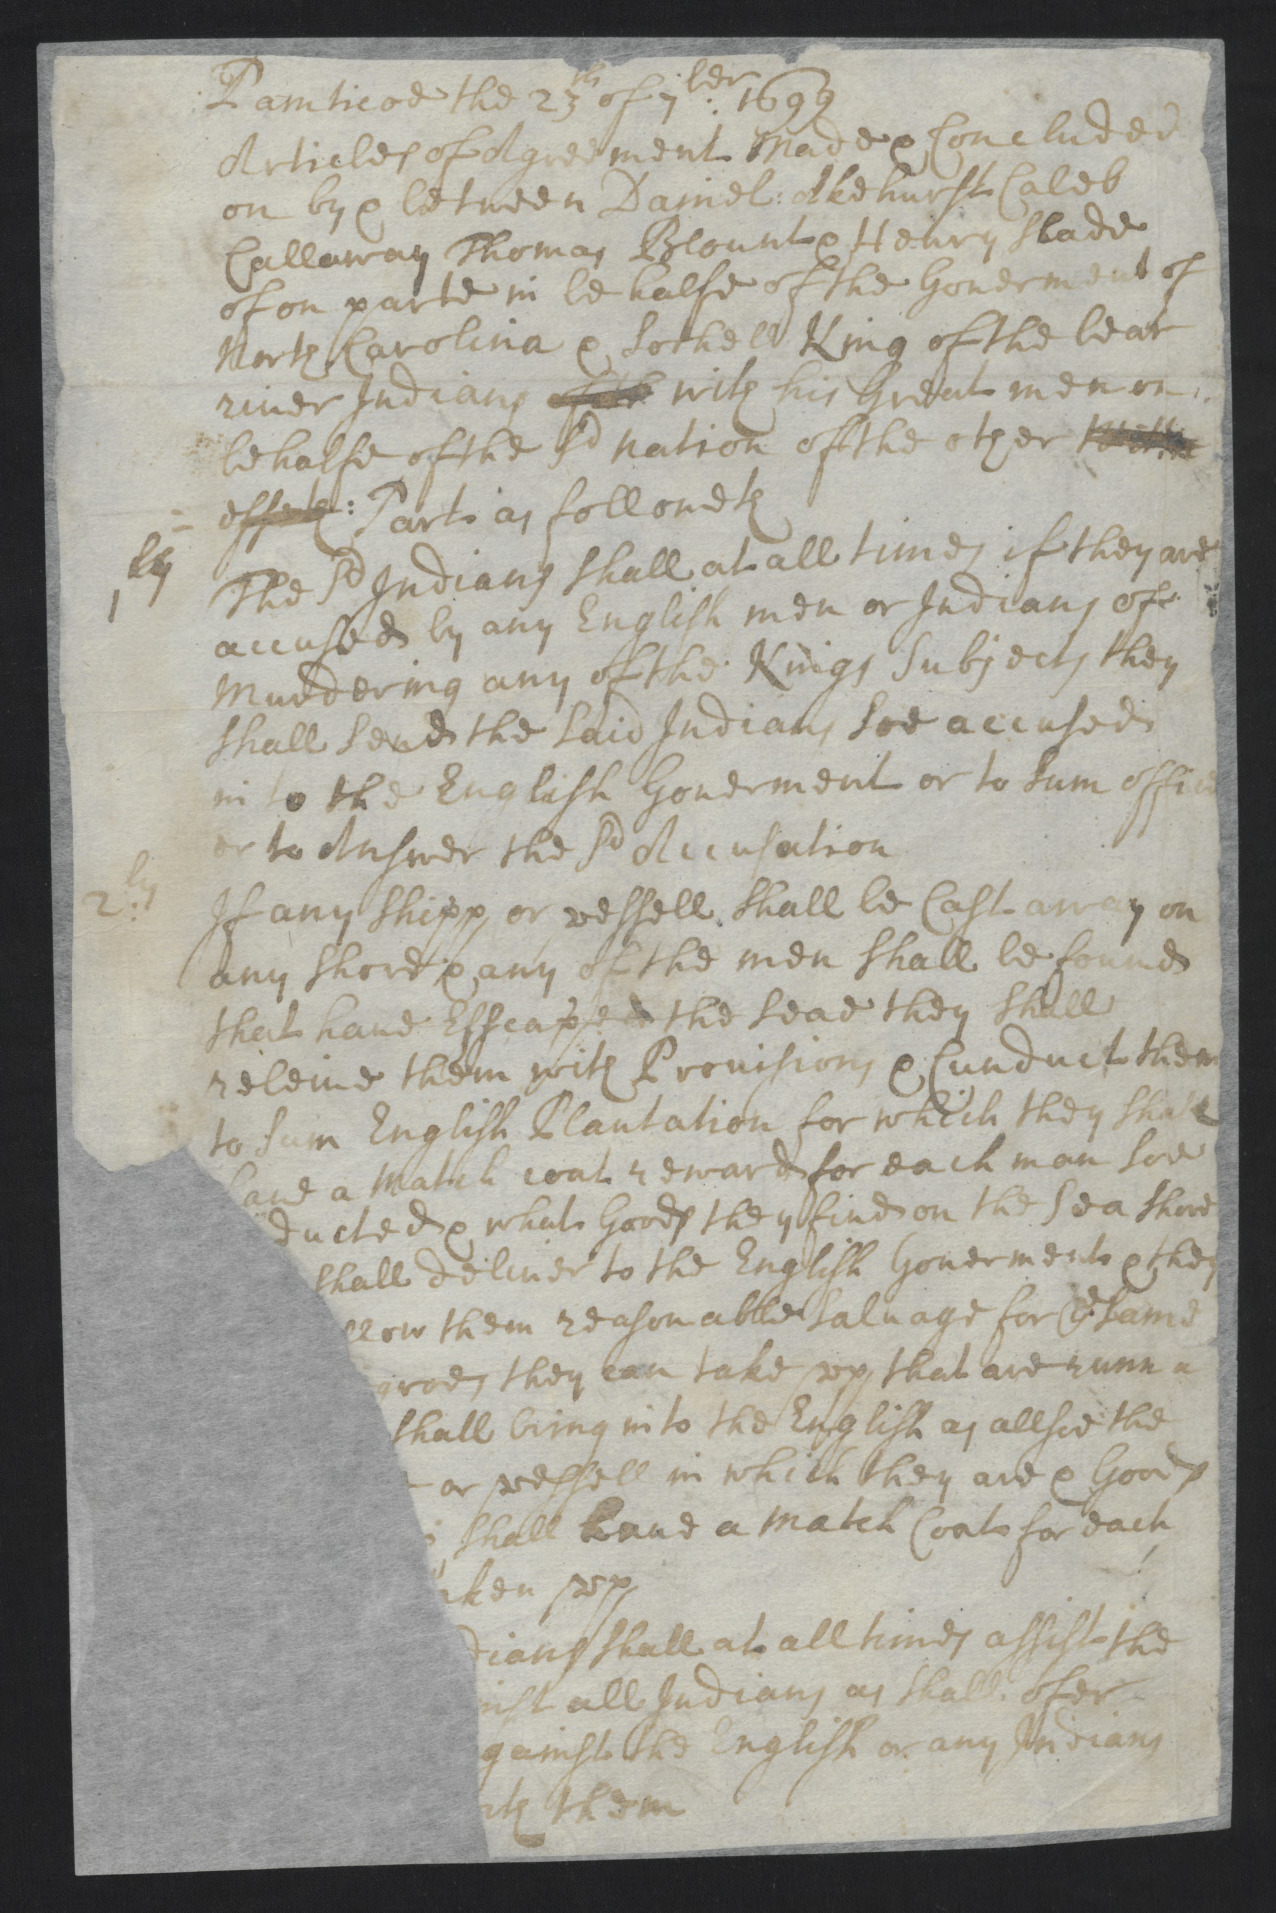 Pamticoe the 23th of 7ber: 1699
Articles of Agreement Made & Concluded
on by & between Daniel: Akehurst Caleb
Callaway Thomas Blount & Henry Slade
of on parte in behalfe of the Gouerment of
North Carolina & Sothell King of the bear
riuer Indians with his Great men on
behalfe of the Sd nation of the other
: Part as followeth
1ly
The Sd Indians Shall at all times if they are
accused by any English men or Indians of
Murdering any of the Kings Subjects they
Shall Send the Said Indians Soe accused
in to the English Gouerment or to Sum offic
er to Answer the Sd Accusation
2ly:
If any Shipp or vessell Shall be Cast away on
any Shore & any of the men Shall be found
that haue Esscaped the Seae they Shall
releiue them with Prouisions & Cunduct them
to Sum English Plantation for which they Shall
haue a Match coat reward for each man Soe
ducted & what Goods they find on the Sea Shore
Shall deliuer to the English Gouerment & they
llow them reasonable Saluage for ye Same
groes they can take vpp that are runn a
Shall bring in to the English as allsoe the
or vessell in which they are & Goods
Shall haue a Match Coat for each
aken vpp
dians Shall at all times assist the
inst all Indians as Shall ofer
gainst the English or any Indians
ith them